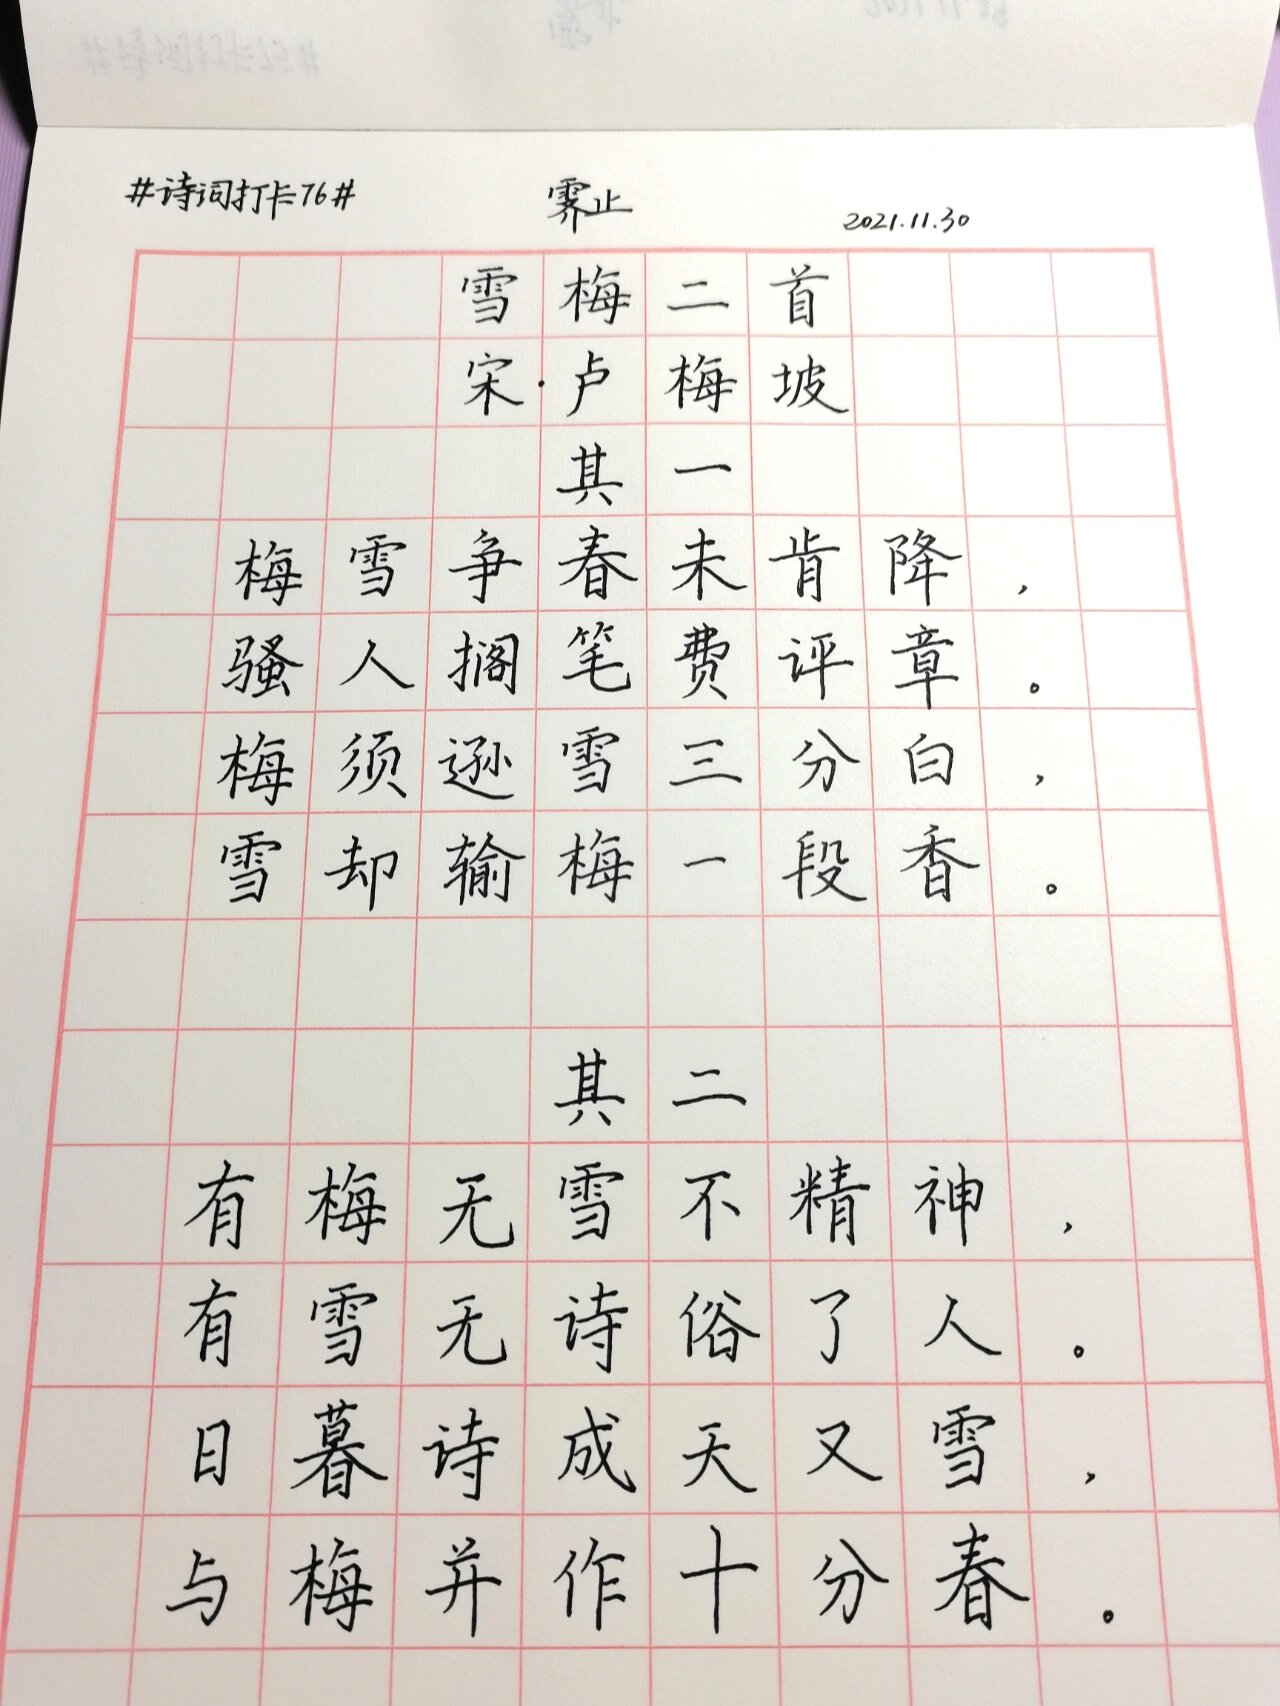 #诗词打卡76# 霁止 2021.11.30
雪梅二首
宋·卢梅坡
其一
梅雪争春未肯降，
骚人搁笔费评章。
梅须逊雪三分白，
雪却输梅一段香。
其二
有梅无雪不精神，
有雪无诗俗了人。
日暮诗成天又雪，
与梅并作十分春。